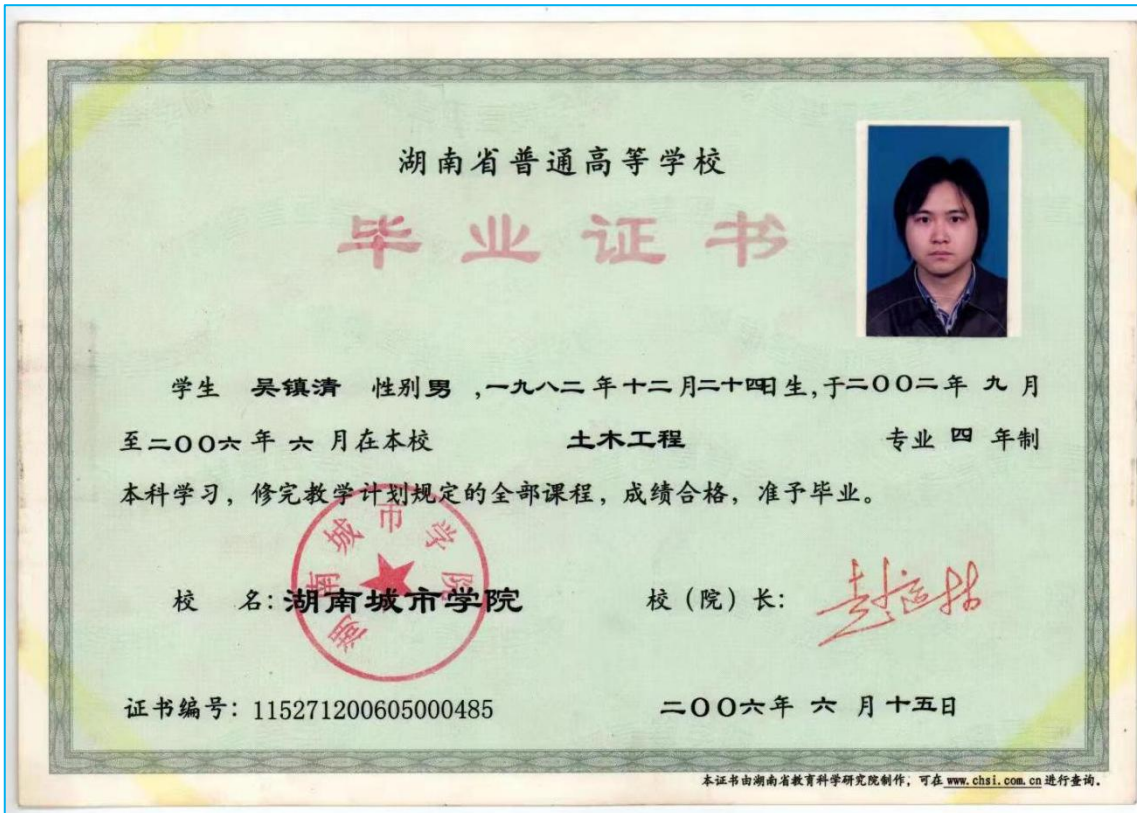 湖南省普通高等学校
毕业证书
学生 吴镇清 性别男 ,一九八二年十二月二十四日生,于二〇〇二年 九 月
至二〇〇六年 六 月在本校 土木工程 专业 四 年制
本科学习，修完教学计划规定的全部课程，成绩合格，准予毕业。
湖南城市学院
校 名:湖南城市学院 校（院）长: 赵运林
证书编号: 115271200605000485 二〇〇六年 六 月十五日
本证书由湖南省教育科学研究院制作，可在 www.chsi.com.cn 进行查询.